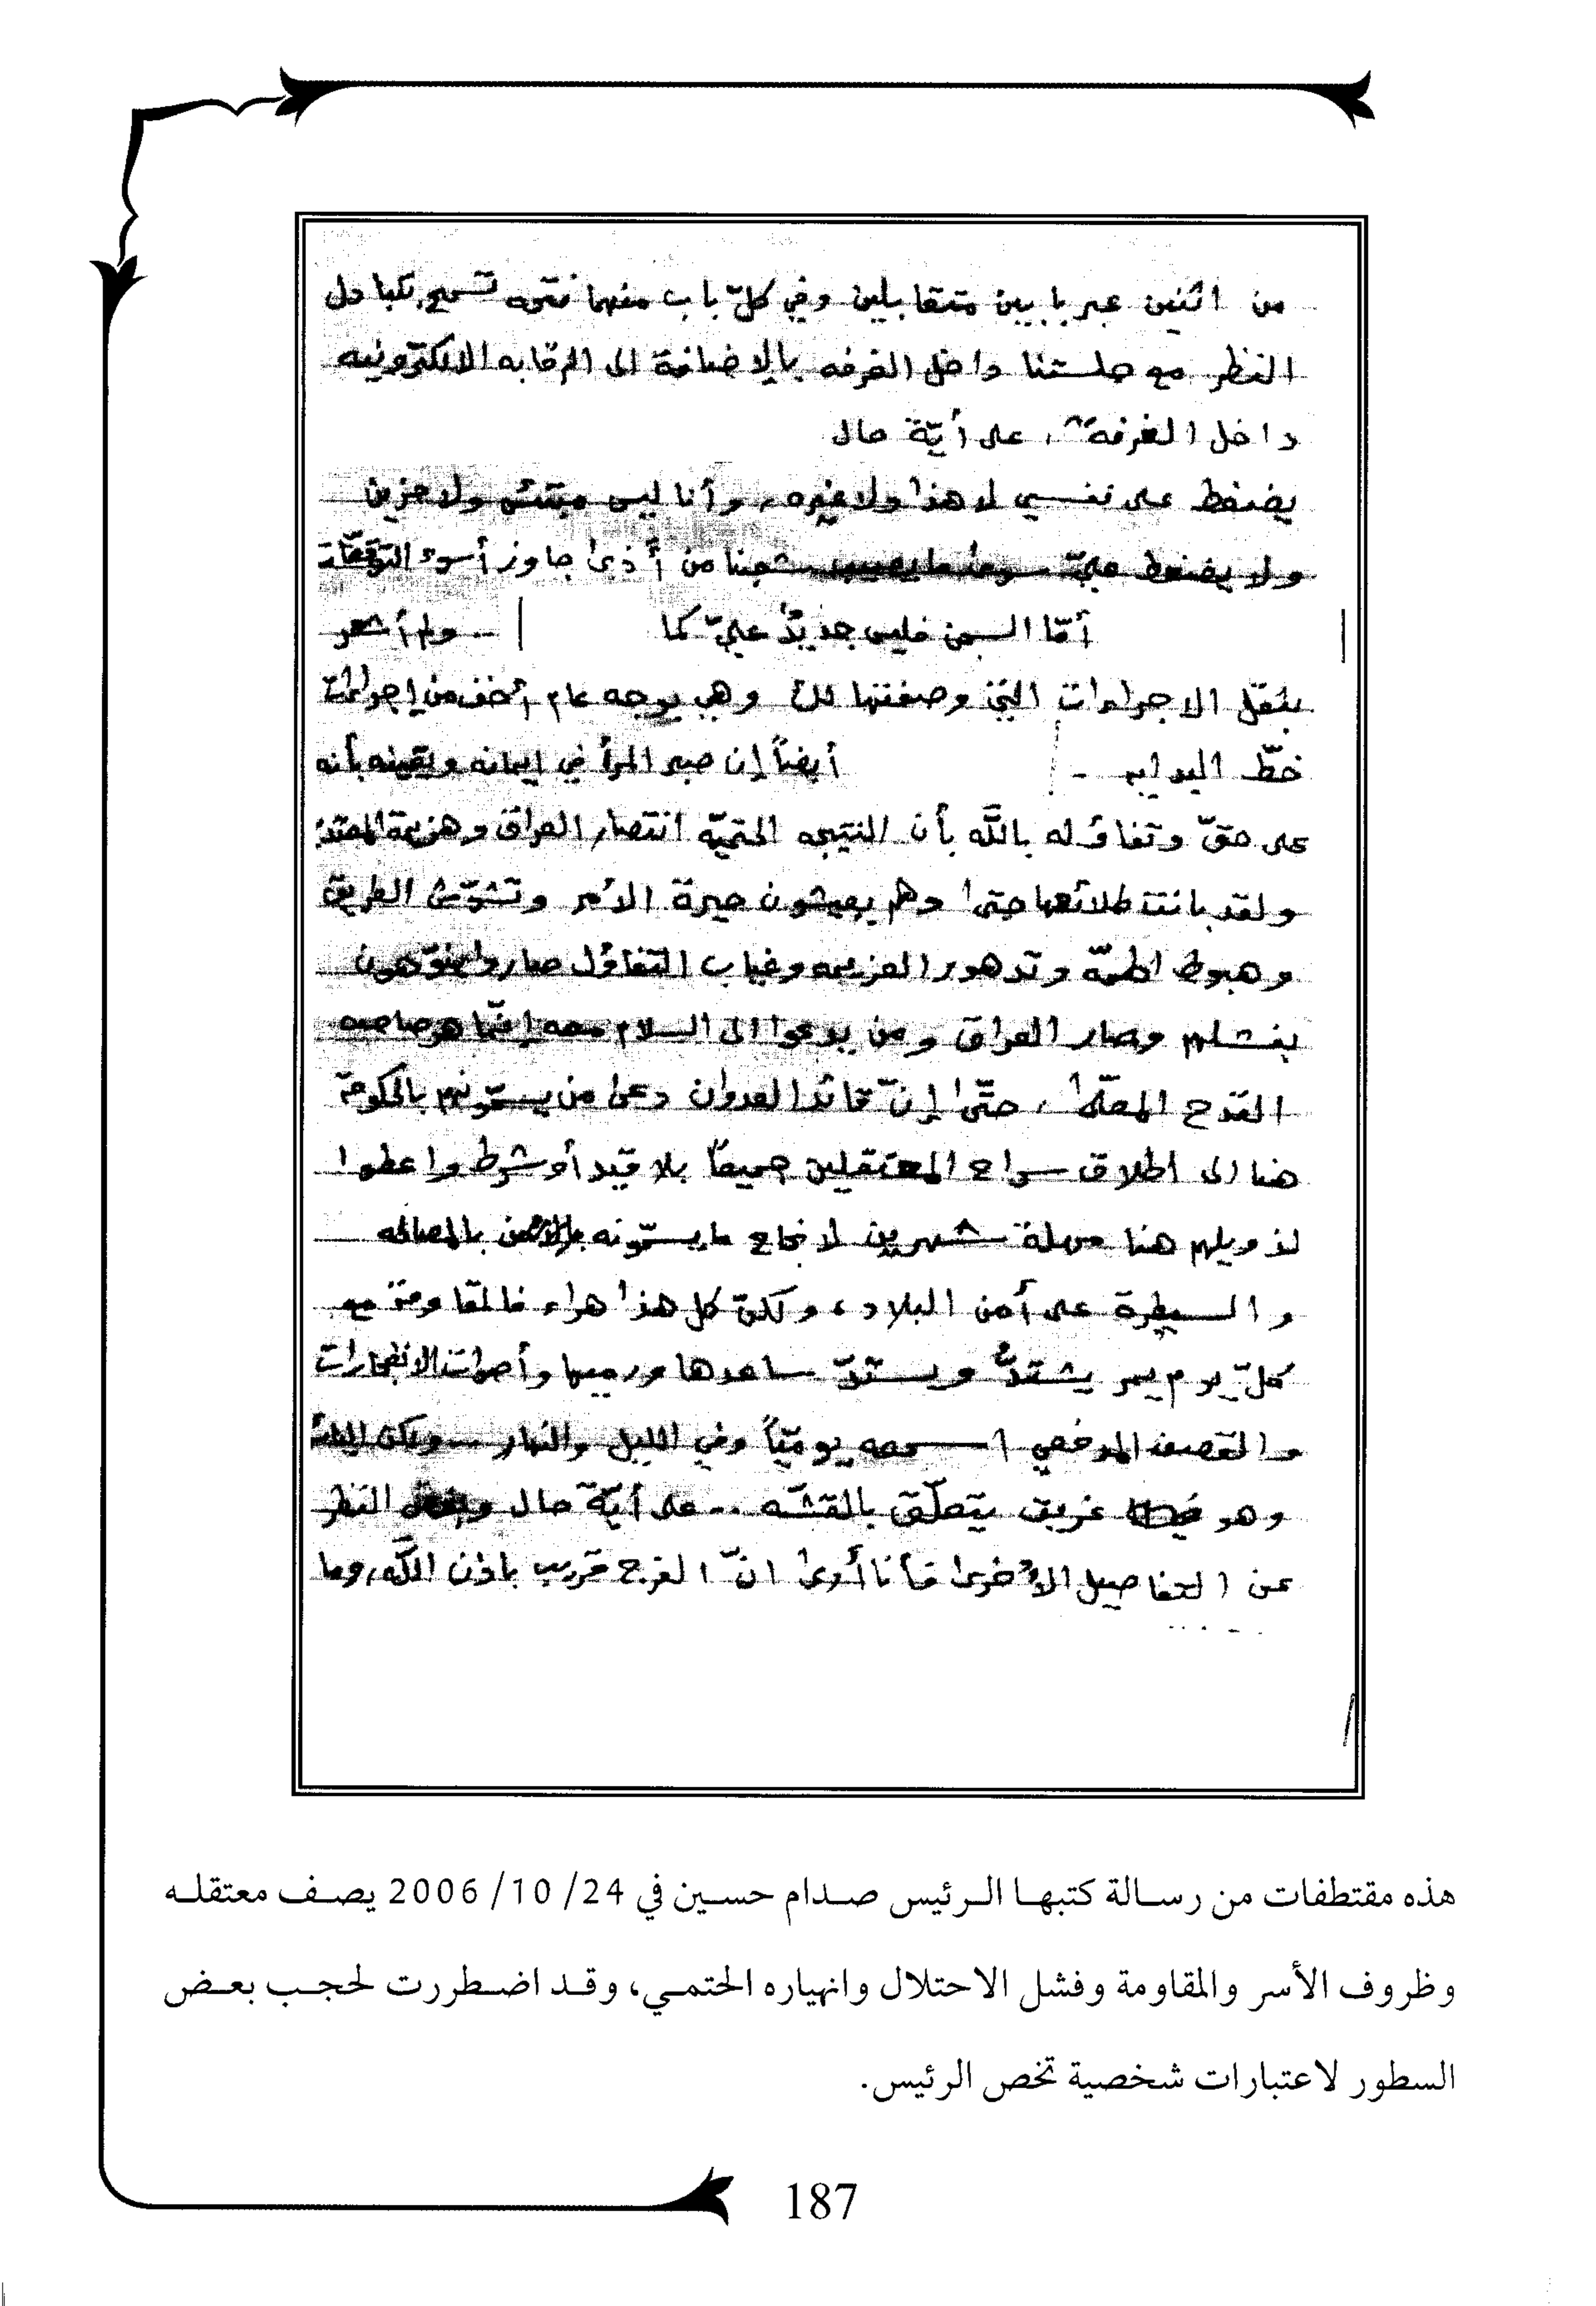 من اثنين عبر بابين متقابلين وفي كلّ باب منهما فتحه تسمح بتبادل
النظر مع جلستنا داخل الغرفه بالاضافة الى الرقابه الالكترونيه
داخل الغرفة، على أيّة حال
يضغط على نفسي لا هذا ولا غيره، وأنا ليس مبتئس ولا حزين
ولا يضغط عليّ سوى ما يصيب شعبنا من أذى جاوز أسوء التوقعّات
أمّا السجن فليس جديدٌ عليّ كما .. ولم أشعر
بثقل الاجراءات التي وصفتها لك وهي بوجه عام أخف من إجراءات
خطّ البدايه - أيضاً إن صبر المرأ في إيمانه ويقينه بأنه
على حقّ وتفاؤله بالله بأن النتيجه الحتميّه انتصار العراق وهزيمة المعتد
ولقد بانت طلائعها حتى وهم يعيشون حيرة الأمر وتشوّش الطريق
وهبوط الهمّه وتدهور العزيمه وغياب التفاؤل صاروا ينوّهون
بفشلهم وصار العراق ومن يدعوا الى السلام معه إنمّا هو صاحب
القدح المعلّى، حتّى إنّ قائد العدوان دعى من يسمّونهم بالحكومة
هنا الى اطلاق سراح المعتقلين جميعاً بلا قيد أو شرط واعطوا
لذويلهم هنا مهلة شهرين لانجاح ما يسمّونه بالأمن بالمصالحه
والسيطرة على أمن البلاد، ولكنّ كل هذا هراء فالمقاومة مع
كلّ يوم يمر يشتدُّ ويستدّ ساعدها ورميها وأصوات الانفجارات
والقصف المدفعي اسمعه يوميّاً وفي الليل والنهار .. ولكن
وهو غريق يتعلّق بالقشّه .. على أيّة حال وبغض النظر
عن التفاصيل الأخرى فأنا أرى انّ الفرج قريب باذن الله، وما
هذه مقتطفات من رسالة كتبها الرئيس صدام حسين في 24/ 10/ 2006 يصف معتقله
وظروف الأسر والمقاومة وفشل الاحتلال وانهياره الحتمي، وقد اضطررت لحجب بعض
السطور لاعتبارات شخصية تخص الرئيس.
187